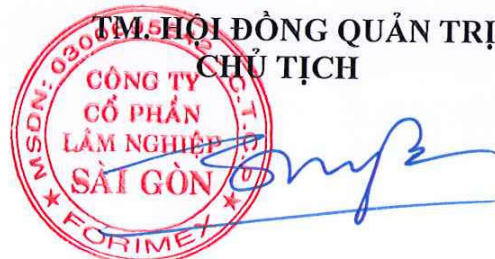 TM. HỘI ĐỒNG QUẢN TRỊ
CHỦ TỊCH
CÔNG TY
CỔ PHẦN
LÂM NGHIỆP
SÀI GÒN
FORIMEX